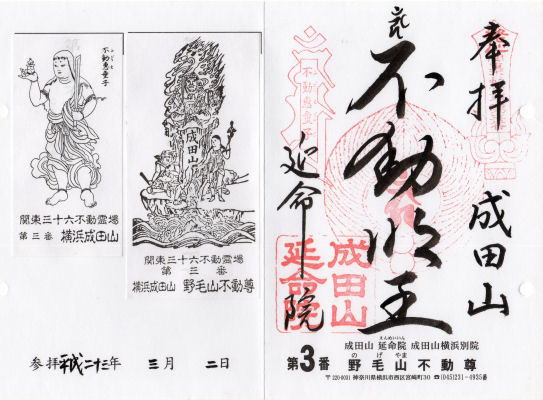 奉拝
成田山
不動明王
不動恵童子
延命院
成田山
延命院
成田山 延命院 成田山横浜別院
えんめいいん
第3番 野毛山不動尊
のげやま
〒220-0031 神奈川県横浜市西区宮崎町30 ☎(045)231-4935番
不動恵童子
ふどうえ
関東三十六不動霊場
第三番 横浜成田山
成田山
関東三十六不動霊場
第三番
横浜成田山 野毛山不動尊
参拝 平成二十三年 三月 二日